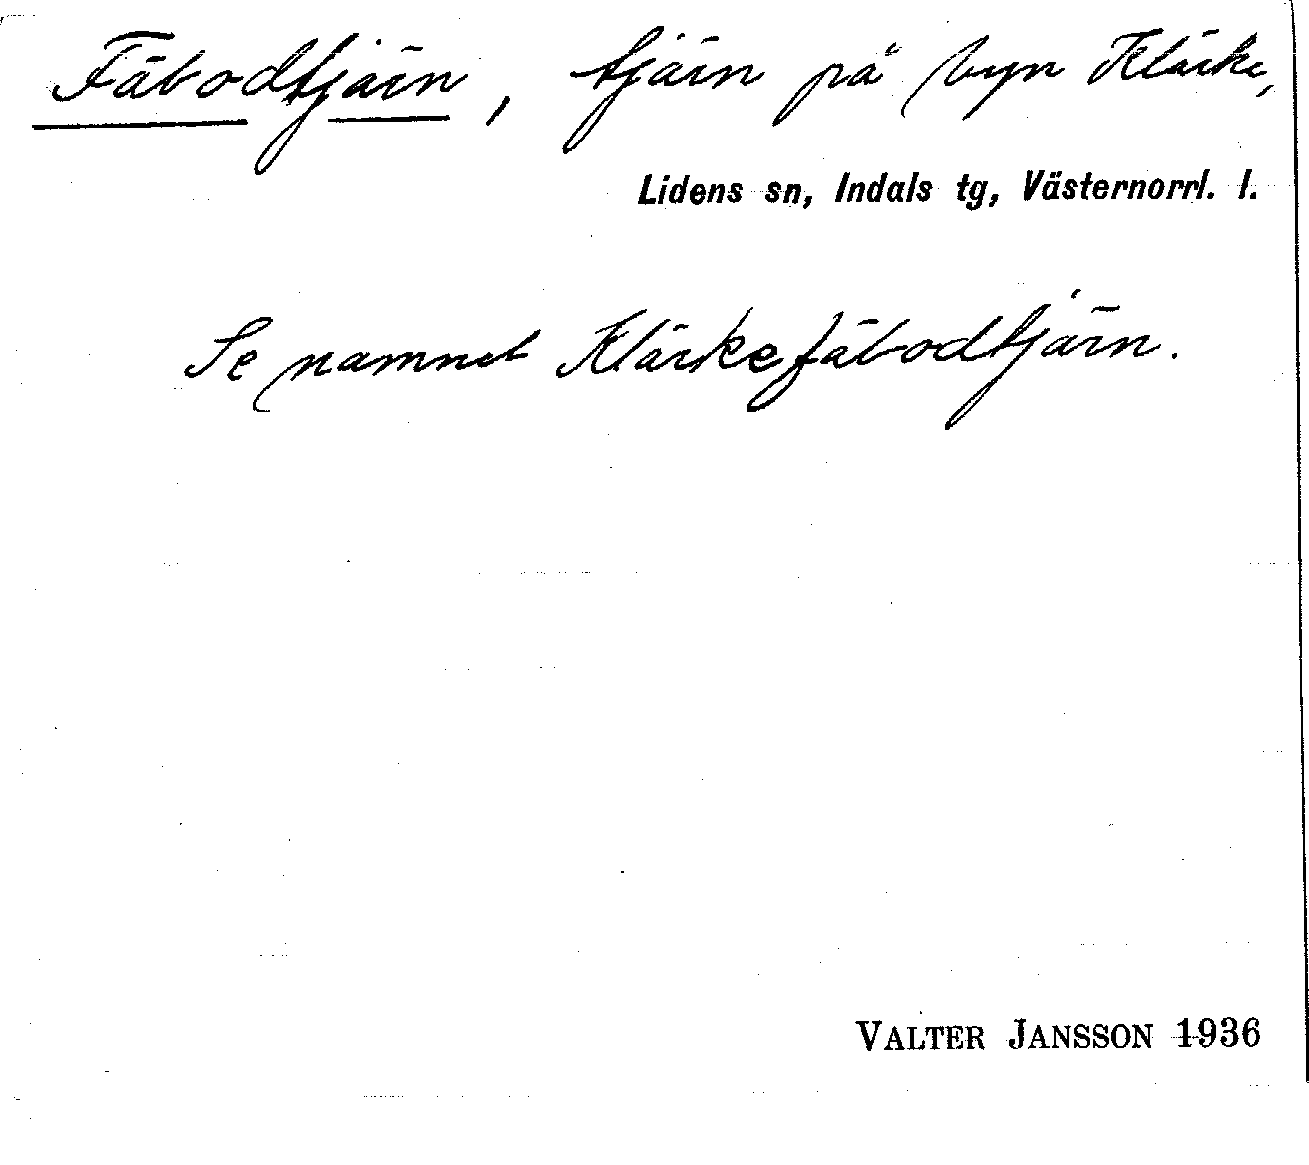 Fäbodtjärn, tjärn på byn Klärke,
Lidens sn, Indals tg, Västernorrl. l.
Se namnet Klärkefäbodtjärn.
VALTER JANSSON 1936